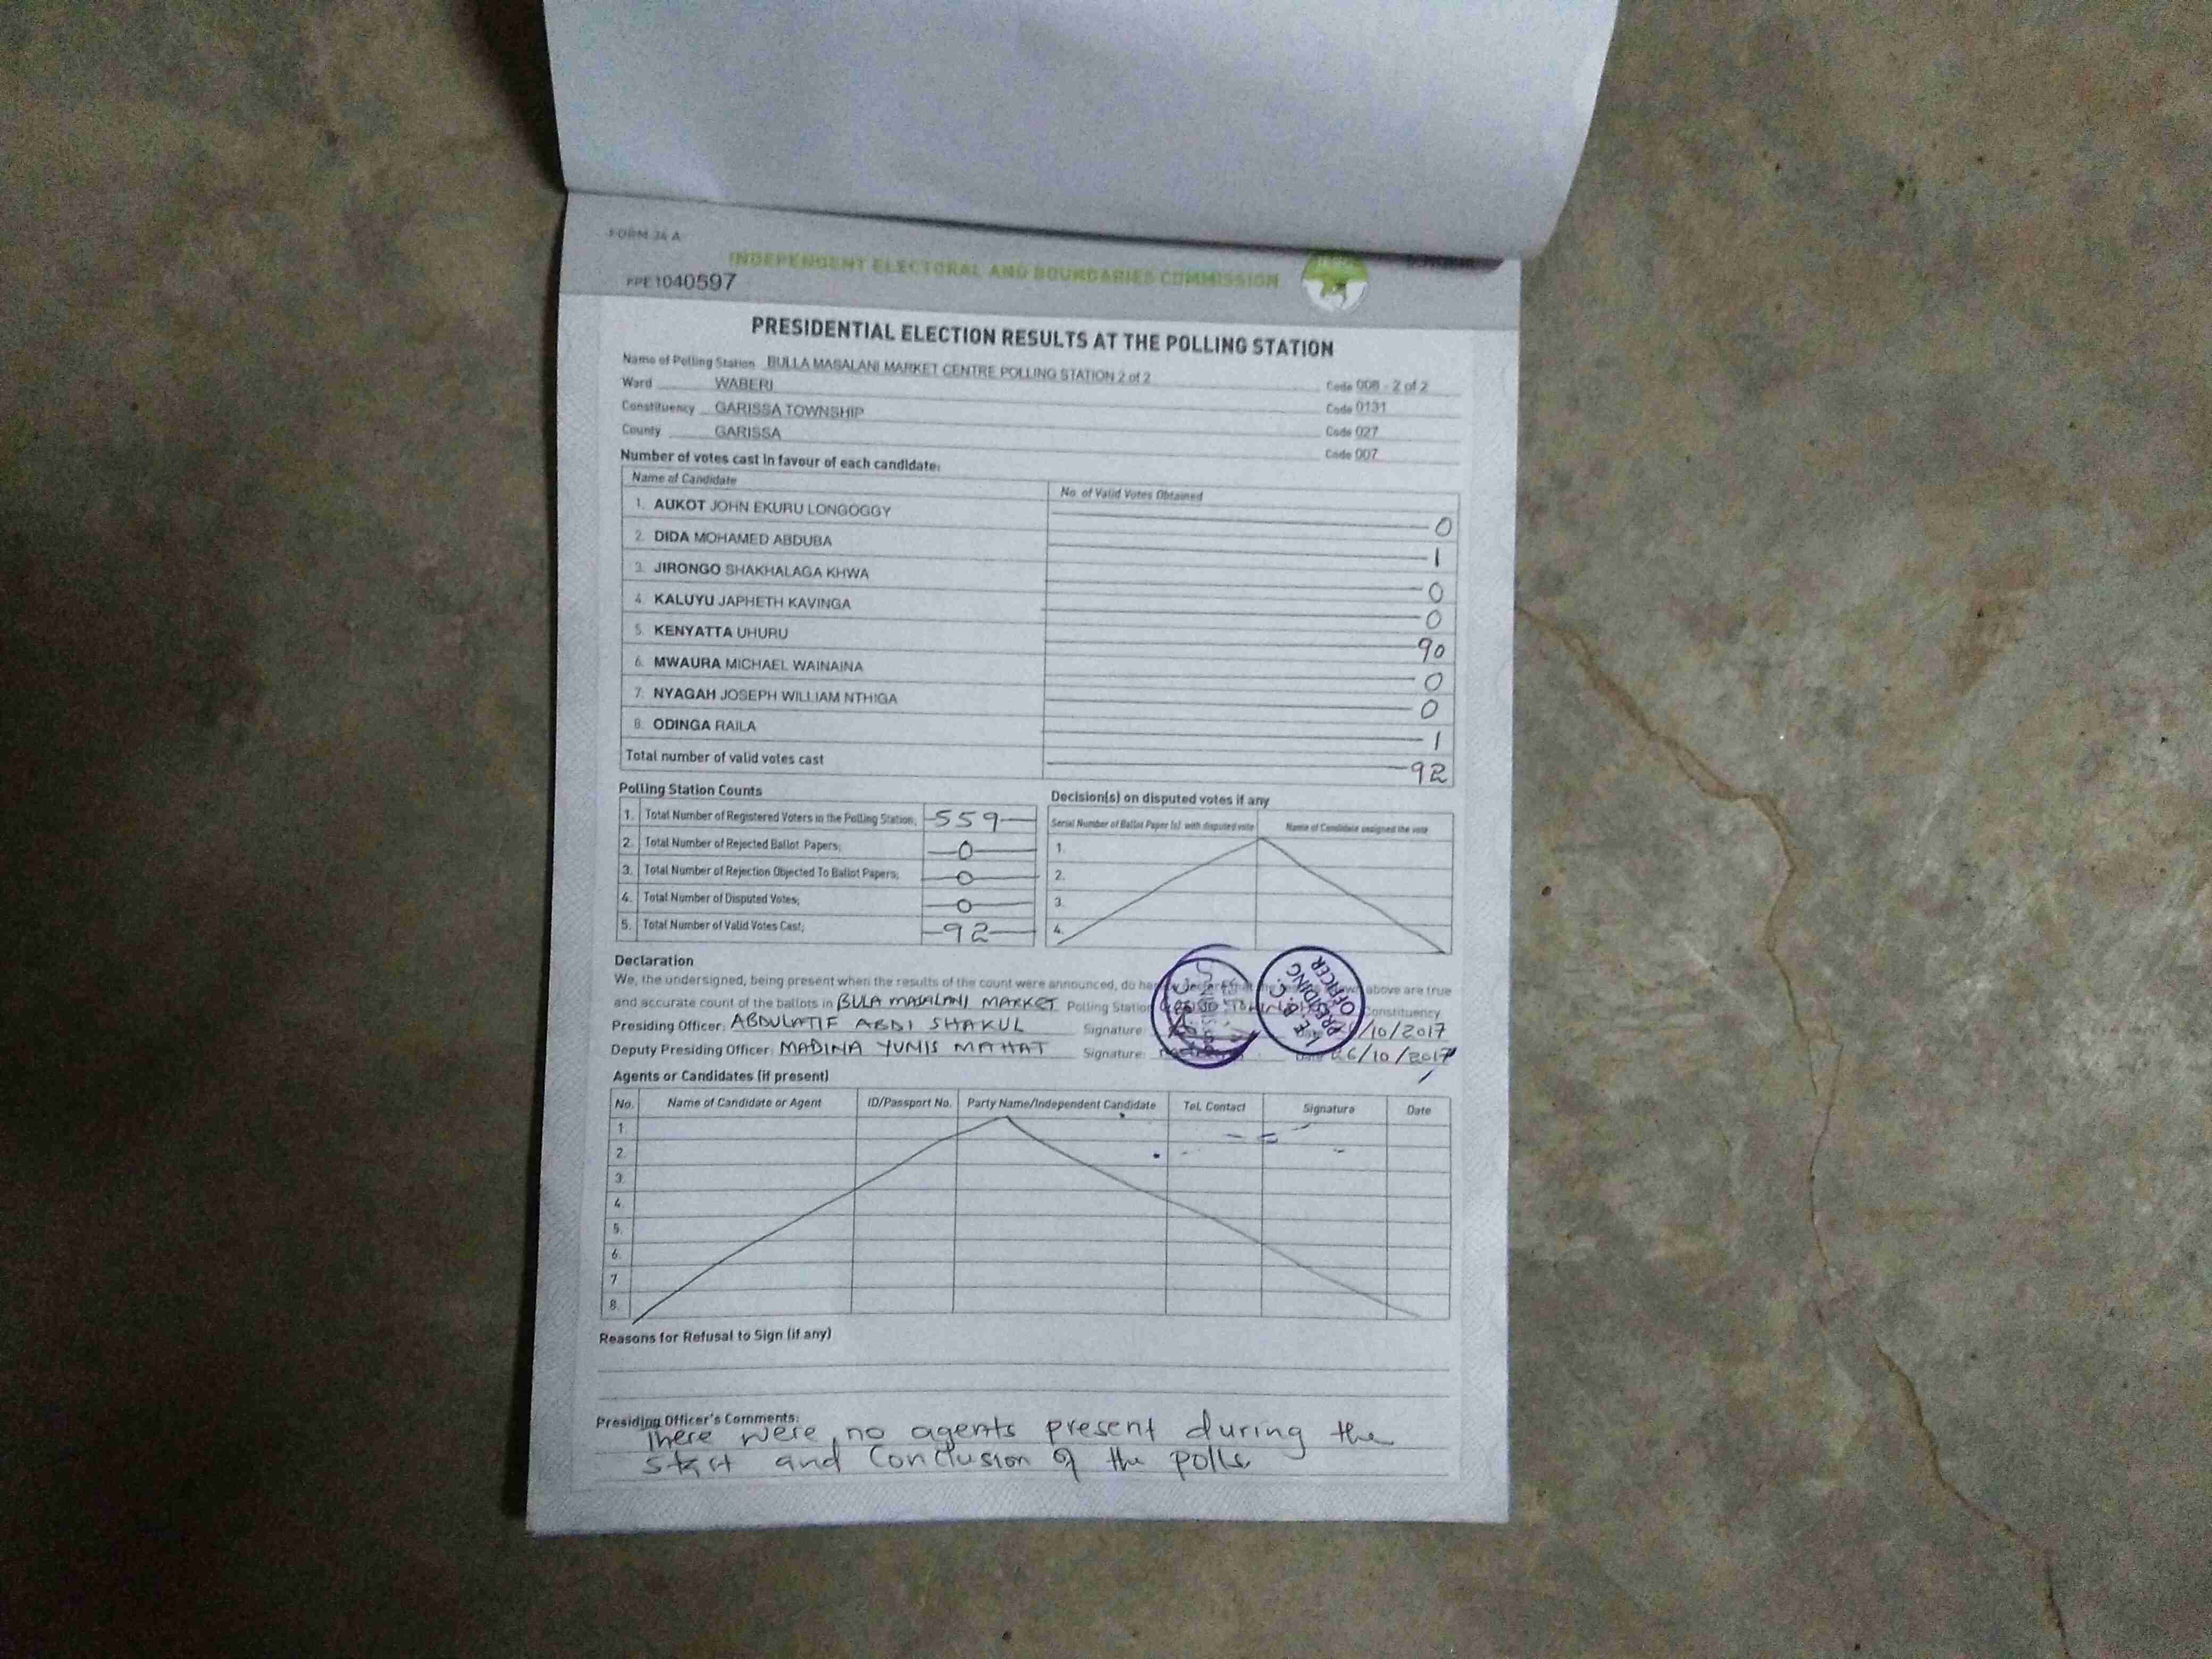 FORM 34 A
INDEPENDENT ELECTORAL AND BOUNDARIES COMMISSION
PPE 1040597
PRESIDENTIAL ELECTION RESULTS AT THE POLLING STATION
Name of Polling Station BULLA MASALANI MARKET CENTRE POLLING STATION 2 of 2 Code 008 - 2 of 2
Ward WABERI Code 0131
Constituency GARISSA TOWNSHIP Code 027
County GARISSA Code 007
Number of votes cast in favour of each candidate:
Name of Candidate No. of Valid Votes Obtained
1. AUKOT JOHN EKURU LONGOGGY 0
2. DIDA MOHAMED ABDUBA 1
3. JIRONGO SHAKHALAGA KHWA 0
4. KALUYU JAPHETH KAVINGA 0
5. KENYATTA UHURU 90
6. MWAURA MICHAEL WAINAINA 0
7. NYAGAH JOSEPH WILLIAM NTHIGA 0
8. ODINGA RAILA 1
Total number of valid votes cast 92
Polling Station Counts
1. Total Number of Registered Voters in the Polling Station; 559
2. Total Number of Rejected Ballot Papers; 0
3. Total Number of Rejection Objected To Ballot Papers; 0
4. Total Number of Disputed Votes; 0
5. Total Number of Valid Votes Cast; 92
Decision(s) on disputed votes if any
Serial Number of Ballot Paper (s) with disputed vote Name of Candidate assigned the vote
1.
2.
3.
4.
Declaration
We, the undersigned, being present when the results of the count were announced, do above are true
and accurate count of the ballots in BULA MASALANI MARKET Polling Station Constituency
Presiding Officer: ABDULATIF ABDI SHAKUL Signature: /10/2017
Deputy Presiding Officer: MADINA YUNIS MAHAT Signature: Date 26/10/2017
I.E.B.C.
PRESIDING
OFFICER
Agents or Candidates (if present)
No. Name of Candidate or Agent ID/Passport No. Party Name/Independent Candidate Tel. Contact Signature Date
1
2.
3.
4.
5.
6.
7
8.
Reasons for Refusal to Sign (if any)
Presiding Officer's Comments:
There were no agents present during the
start and Conclusion of the polls